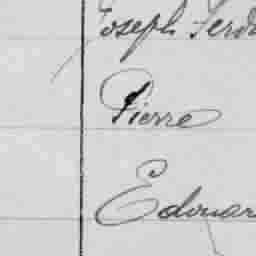 Joseph Ferd
Pierre
Edouar